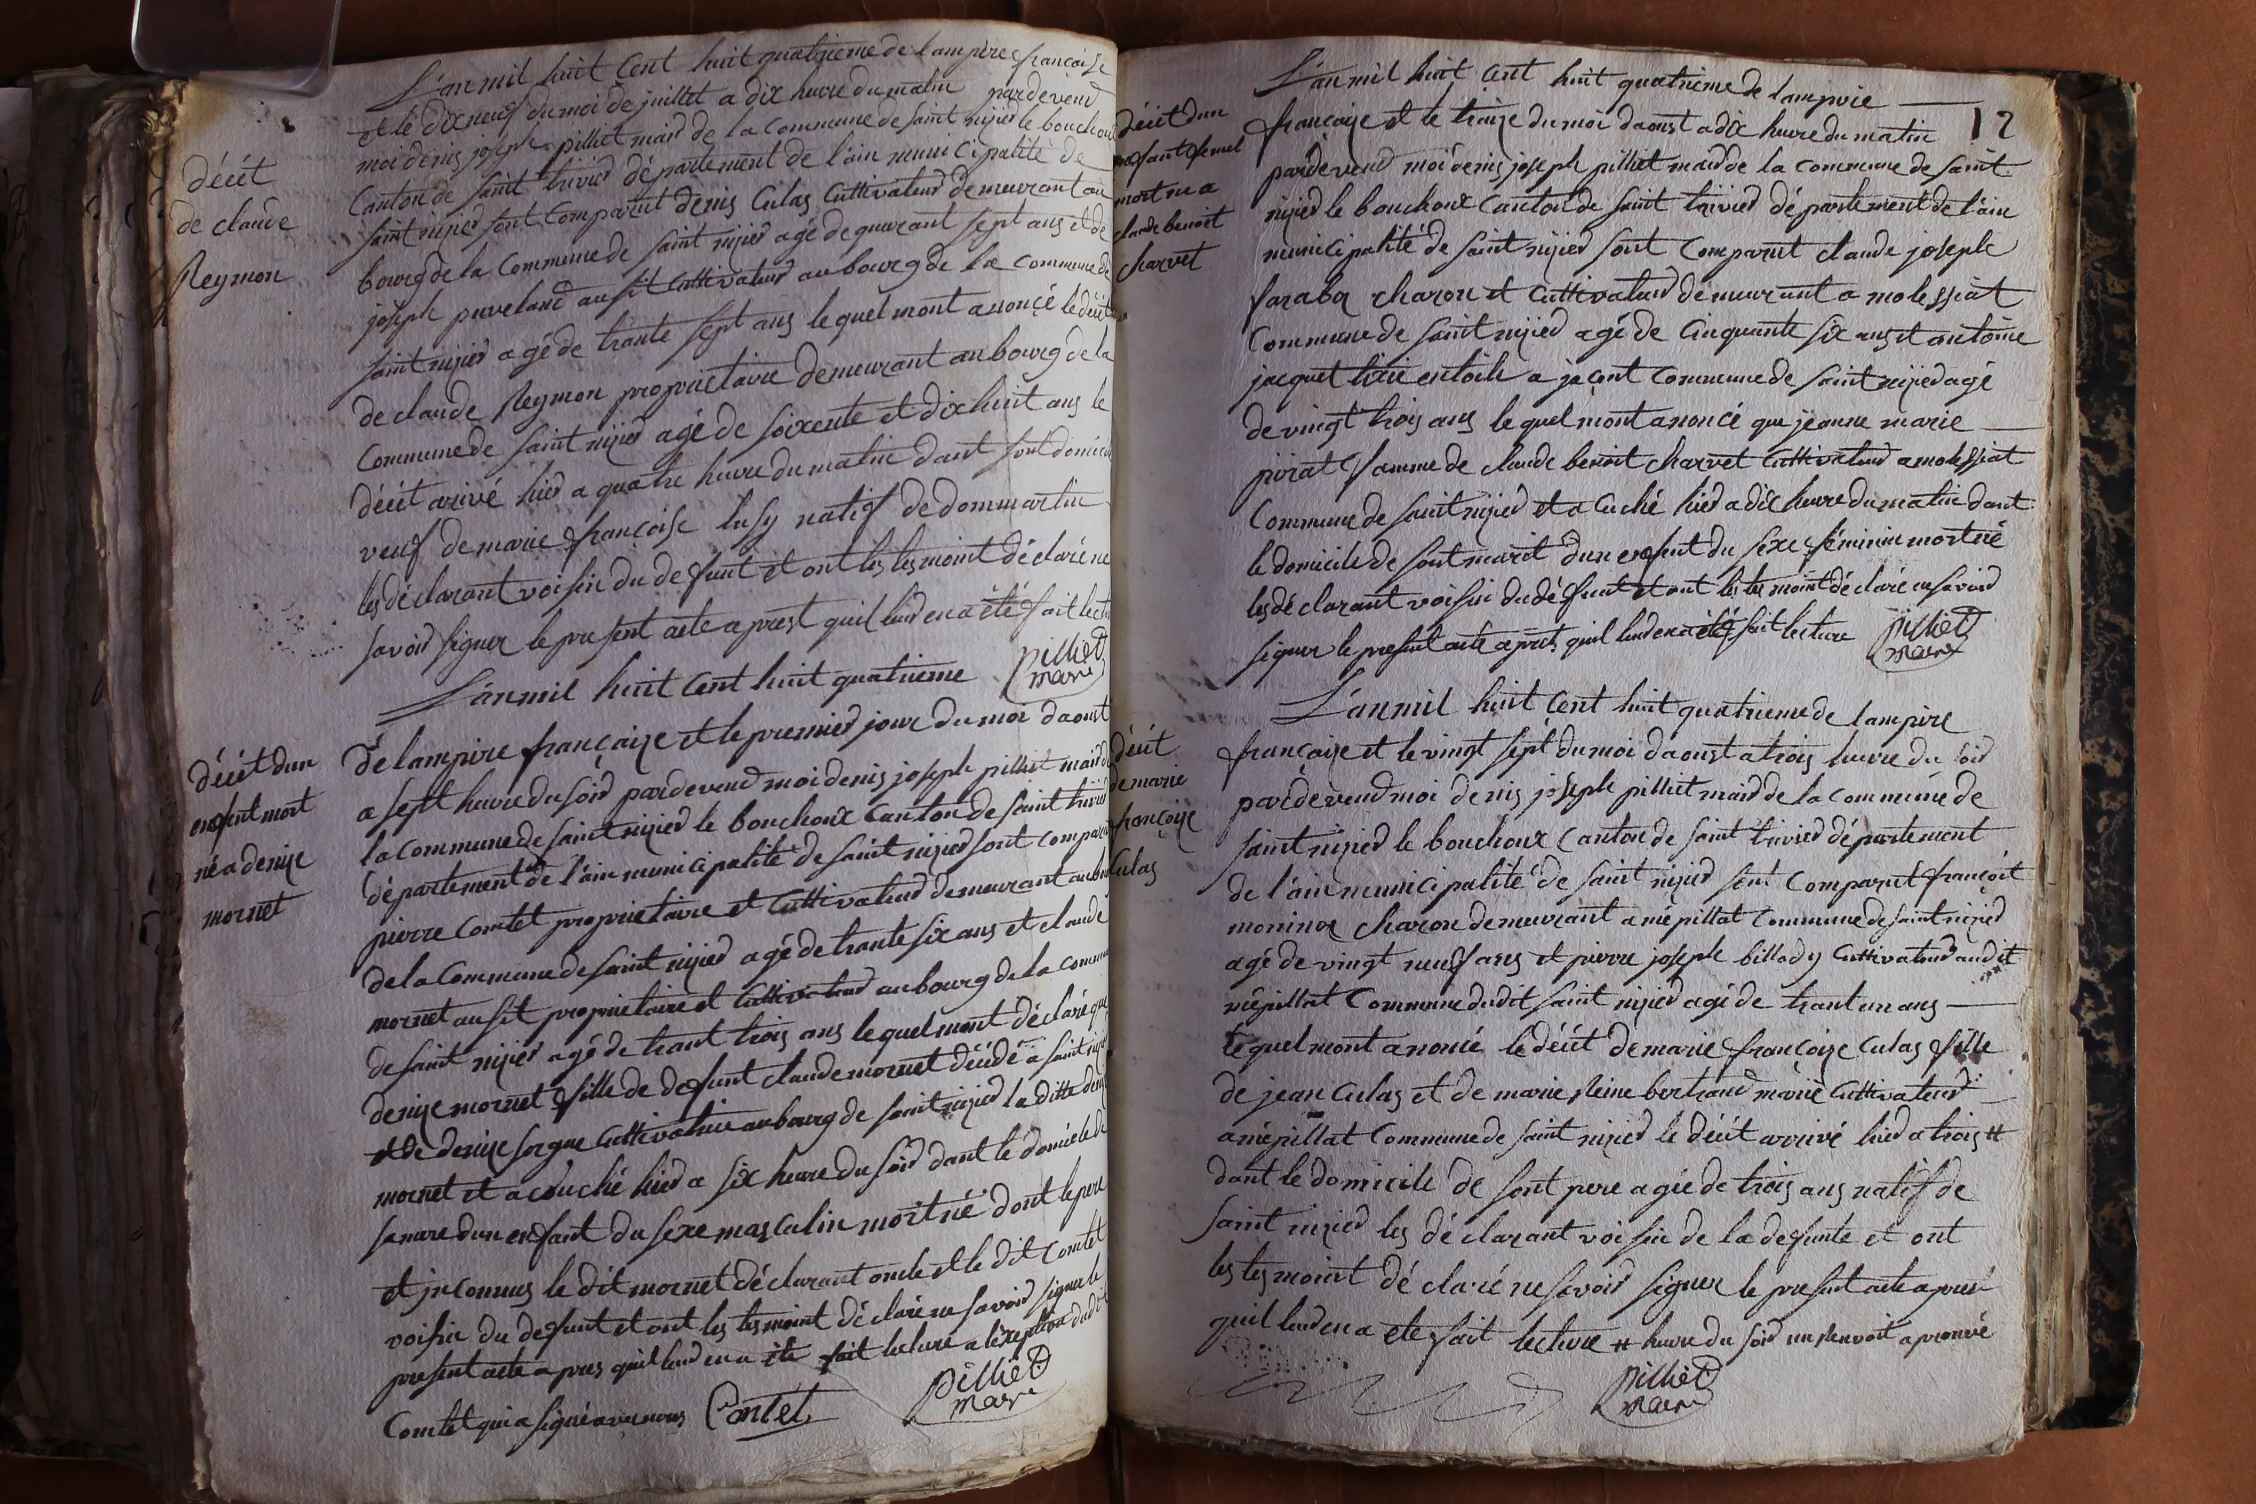 L'an mil huit Cent huit quatrieme de lampire françoise
et le dix neuf du moi de juillet a dix heure du matin pardevend
moi denis joseph pilliet maird de la Commune de saint nizied le bouchoux
Canton de saint trivied département de l'ain municipalité de
saint nizied sont Comparut denis Culas Cultivateurd demeurant au
bourg de la Commune de saint nizied agé de quarant sept ans et de
joseph puveland ausit Cultivateurd au bourg de la Commune de
saint nizied agé de trante sept ans le quel mont anoncé le décét
de claude Reymon proprietaire demeurant au bourg de la
Commune de saint nizied agé de soixente et dix huit ans le
décét arivé hied a quatre heure du matin dant sont domicile
veuf de marie françoise lusy natif de dommartin
les déclarant voisin du defunt et ont les tesmoint déclaré ne
savoir signer le present acte a prest quil leurd en a été fait lecture
pilliet
maire
décét
de claude
Reymon
L'an mil huit Cent huit quatrieme
de lampire françaize et le premier jour du moi daoust
a sept heure du soird pardevend moi denis joseph pilliet maird de
la Commune de saint nizied le bouchoux Canton de saint trivied
département de l'ain municipalité de saint nizied sont comparut
pierre Comtet proprietaire et Cultivateurd demeurant au bourg
de la Commune de saint nizied agé de trante six ans et claude
mornet ausit proprietaire et Cultivateurd au bourg de la Commune
de saint nizied agé de trant trois ans le quel mont déclaré que
denize mornet fille de defunt claude mornet décédé a saint nizied
et de denize sorgue Cultivatrice au bourg de saint nizied la ditte denize
mornet et a couché hied a six heure du soird dant le domicile de
sa mare dun enfant du sexe masculin mort né dont le pere
et inconnus le dit mornet déclarant oncle et le dit Comtet
voisin du defunt et ont les tesmoint déclaré ne savoir signer le
present acte a pres quil leurd en a été fait lecture a léxeption dudit
Comtet qui a signé avec nous Contet
pilliet
maire
décét dun
enfent mort
né a denize
mornet
12
L'an mil huit Cent huit quatrieme de lampire
françaize et le traize du moi daoust a dix heure du matin
pardevend moi denis joseph pilliet maird de la Commune de saint
nizied le bouchoux Canton de saint trivied département de l'ain
municipalité de saint nizied sont Comparut claude joseph
faraboz charon et Cultivateurd demeurant a molessiat
Commune de saint nizied agé de Cinquante six ans et antoine
jacquet tixie en toile a jacont Commune de saint nizied agé
de vingt trois ans le quel mont anoncé que jeanne marie
pirat famme de claude benoit charvet Cultivateurd a molessiat
Commune de saint nizied et a Cuché hied a dix heure du matin dant
le domicile de sont marit dun enfent du sexe féminin mort né
les déclarant voisin du défunt et ont les tesmoint déclaré ne savoird
signer le present acte apres quil leurd en a été fait lecture
pilliet
maire
décét dun
enfant femel
mort né a
claude benoit
charvet
L'an mil huit Cent huit quatrieme de lampire
françaize et le vingt sept du moi daoust a trois heure du soir
pardevend moi denis joseph pilliet maird de la commune de
saint nizied le bouchoux Canton de saint trivied département
de l'ain municipalité de saint nizied sont Comparut françoit
moninoz charon demeurant a mépillat Commune de saint nizied
agé de vingt neuf ans et pierre joseph billady Cultivateurd audit
mépillat Commune dudit saint nizied agé de trant un ans
lequel mont anoncé le décét de marie françoize Culas fille
de jean Culas et de marie Reine bertrand marié Cultivateurd
a mépillat Commune de saint nizied le décét arrivé hied a trois #
dant le domicile de sont pere agée de trois ans natif de
saint nizied les déclarant voisin de la defunte et ont
les tesmoint déclaré ne savoird signer le present acte a pres
quil leurd en a ete fait lecture # heure du soir un Renvoit aprouvé
pilliet
maire
décét
de marie
françoize
Culas